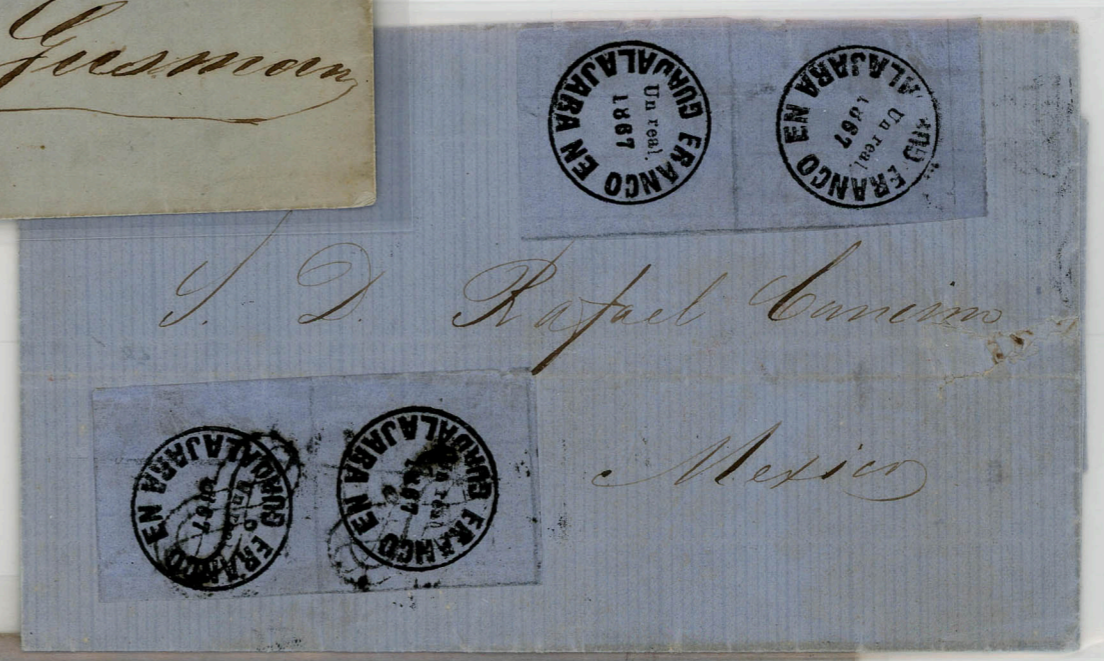 Gusman
FRANCO EN GUADALAJARA
Un real.
1867
FRANCO EN GUADALAJARA
Un real.
1867
S. D. Rafael Cancino
Mexico
FRANCO EN GUADALAJARA
1867
FRANCO EN GUADALAJARA
Un real
1867